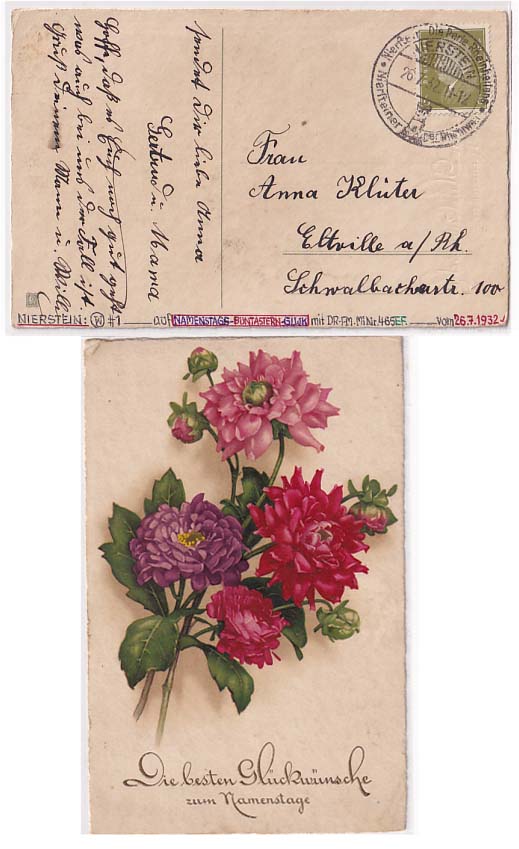 sendet Dir liebe Anna
Gertrud u. Mama
Hoffe, daß es Euch noch gut geht
was auch bei uns der Fall ist.
Gruß Deinen Mann u. Willi
Frau
Anna Klüter
Eltville a/Rh.
Schwalbacherstr. 100
NIERSTEIN
Nierstein Die Perle Rheinhessens
Niersteiner
26.7.32.11-12
NIERSTEIN: W #1 auf NAMENSTAGS-BUNTASTERN-GUJK mit DR-FM.MiNr.465EF vom 26.7.1932
Die besten Glückwünsche
zum Namenstage